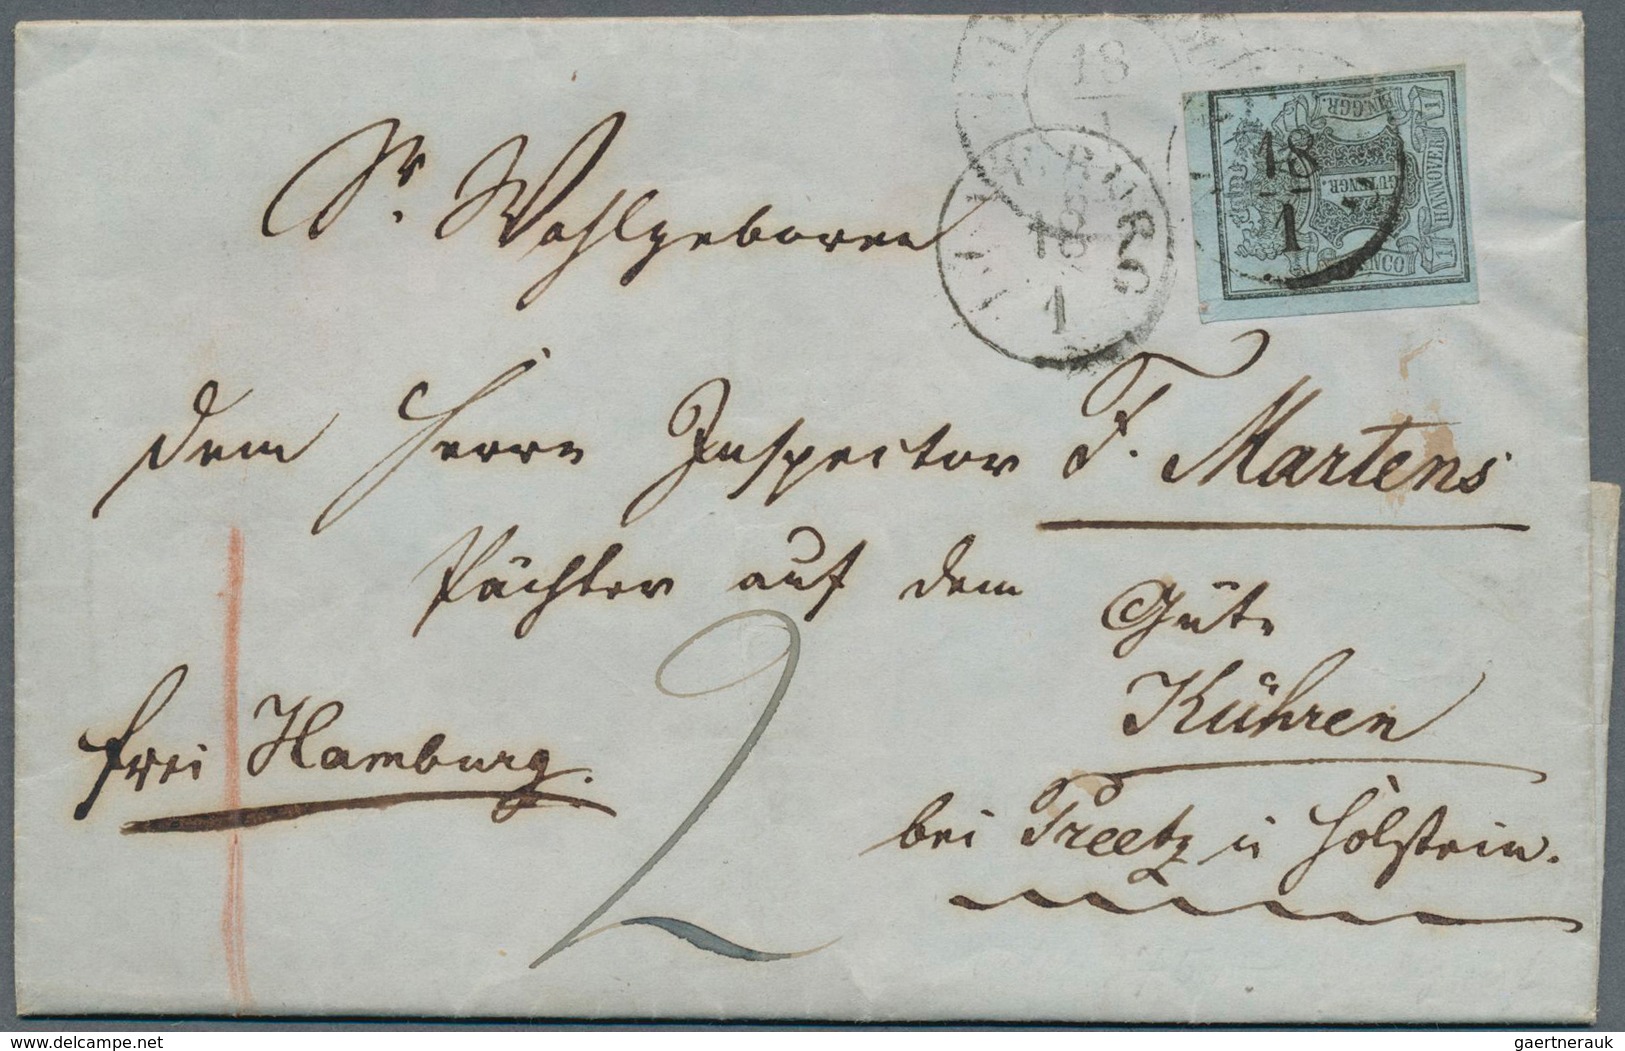 Sr. Wohlgeboren
dem Herrn Inspector F. Martens
Pächter auf dem
Gute
Kühren
bei Preetz in Holstein.
frei Hamburg.
2
18
1
18
1
18
1
EIN GGR.
HANNOVER
GUTENGR.
FRANCO
1
1
delcampe.net
gaertnerauk